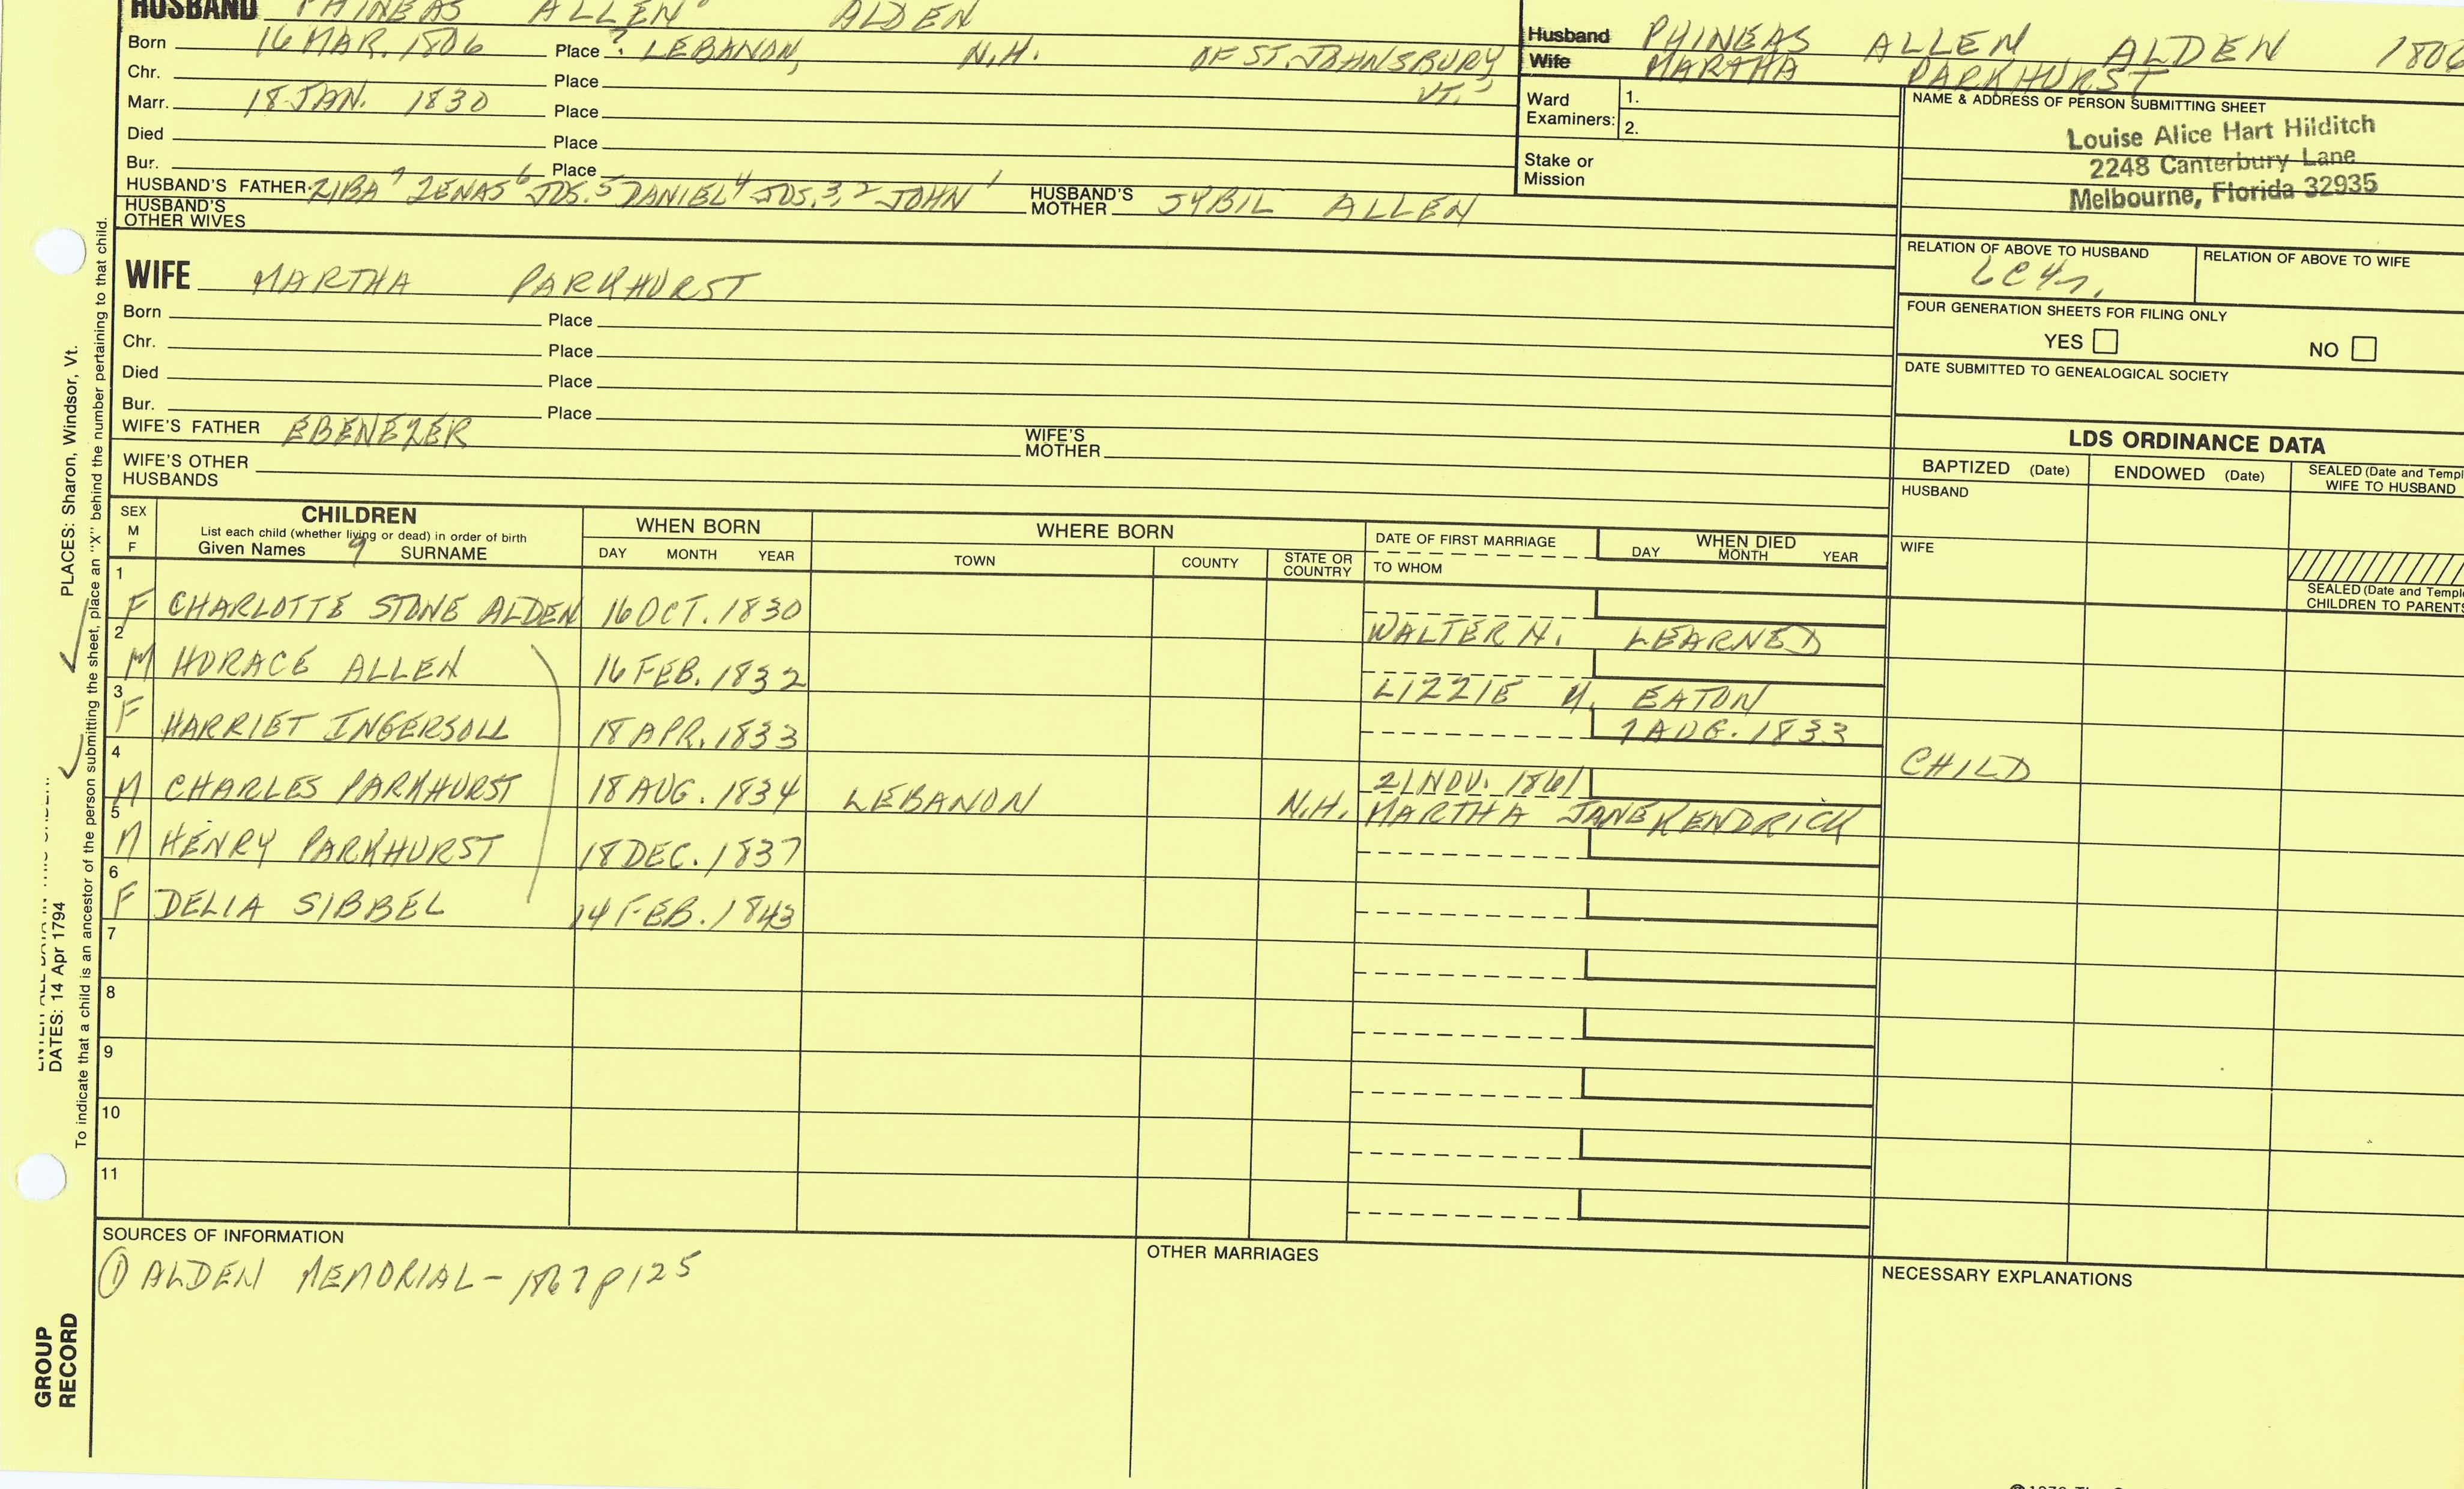 HUSBAND PHINEAS ALLEN ALDEN
Born 16 MAR. 1806 Place ? LEBANON, N.H. OF ST. JOHNSBURY, VT.
Chr. Place
Marr. 18 JAN. 1830 Place
Died Place
Bur. Place
HUSBAND'S FATHER ZIBA 7 ZENAS 6 JOS. 5 DANIEL 4 JOS. 3, 2 JOHN 1 HUSBAND'S MOTHER SYBIL ALLEN
HUSBAND'S OTHER WIVES
WIFE MARTHA PARKHURST
Born Place
Chr. Place
Died Place
Bur. Place
WIFE'S FATHER EBENEZER WIFE'S MOTHER
WIFE'S OTHER HUSBANDS
Husband PHINEAS ALLEN ALDEN 1806
Wife MARTHA PARKHURST
Ward Examiners: 1.
2.
Stake or Mission
NAME & ADDRESS OF PERSON SUBMITTING SHEET
Louise Alice Hart Hilditch
2248 Canterbury Lane
Melbourne, Florida 32935
RELATION OF ABOVE TO HUSBAND RELATION OF ABOVE TO WIFE
FOUR GENERATION SHEETS FOR FILING ONLY
YES NO
DATE SUBMITTED TO GENEALOGICAL SOCIETY
LDS ORDINANCE DATA
BAPTIZED (Date) ENDOWED (Date) SEALED (Date and Templ
WIFE TO HUSBAND
HUSBAND
WIFE
SEALED (Date and Templ
CHILDREN TO PARENTS
SEX M F CHILDREN WHEN BORN WHERE BORN DATE OF FIRST MARRIAGE WHEN DIED
List each child (whether living or dead) in order of birth
Given Names 9 SURNAME DAY MONTH YEAR TOWN COUNTY STATE OR COUNTRY TO WHOM DAY MONTH YEAR
1 F CHARLOTTE STONE ALDEN 16 OCT. 1830 WALTER N. LEARNED
2 M HORACE ALLEN 16 FEB. 1832 LIZZIE EATON
3 F HARRIET INGERSOLL 18 APR. 1833 7 AUG. 1833 CHILD
4 M CHARLES PARKHURST 18 AUG. 1834 LEBANON N.H. 21 NOV. 1861 MARTHA JANE KENDRICK
5 M HENRY PARKHURST 18 DEC. 1837
6 F DELIA SIBBEL 14 FEB. 1843
7
8
9
10
11
SOURCES OF INFORMATION
① ALDEN MEMORIAL - 1867 P125
OTHER MARRIAGES
NECESSARY EXPLANATIONS
PLACES: Sharon, Windsor, Vt.
DATES: 14 Apr 1794
To indicate that a child is an ancestor of the person submitting the sheet, place an "X" behind the number pertaining to that child.
GROUP
RECORD